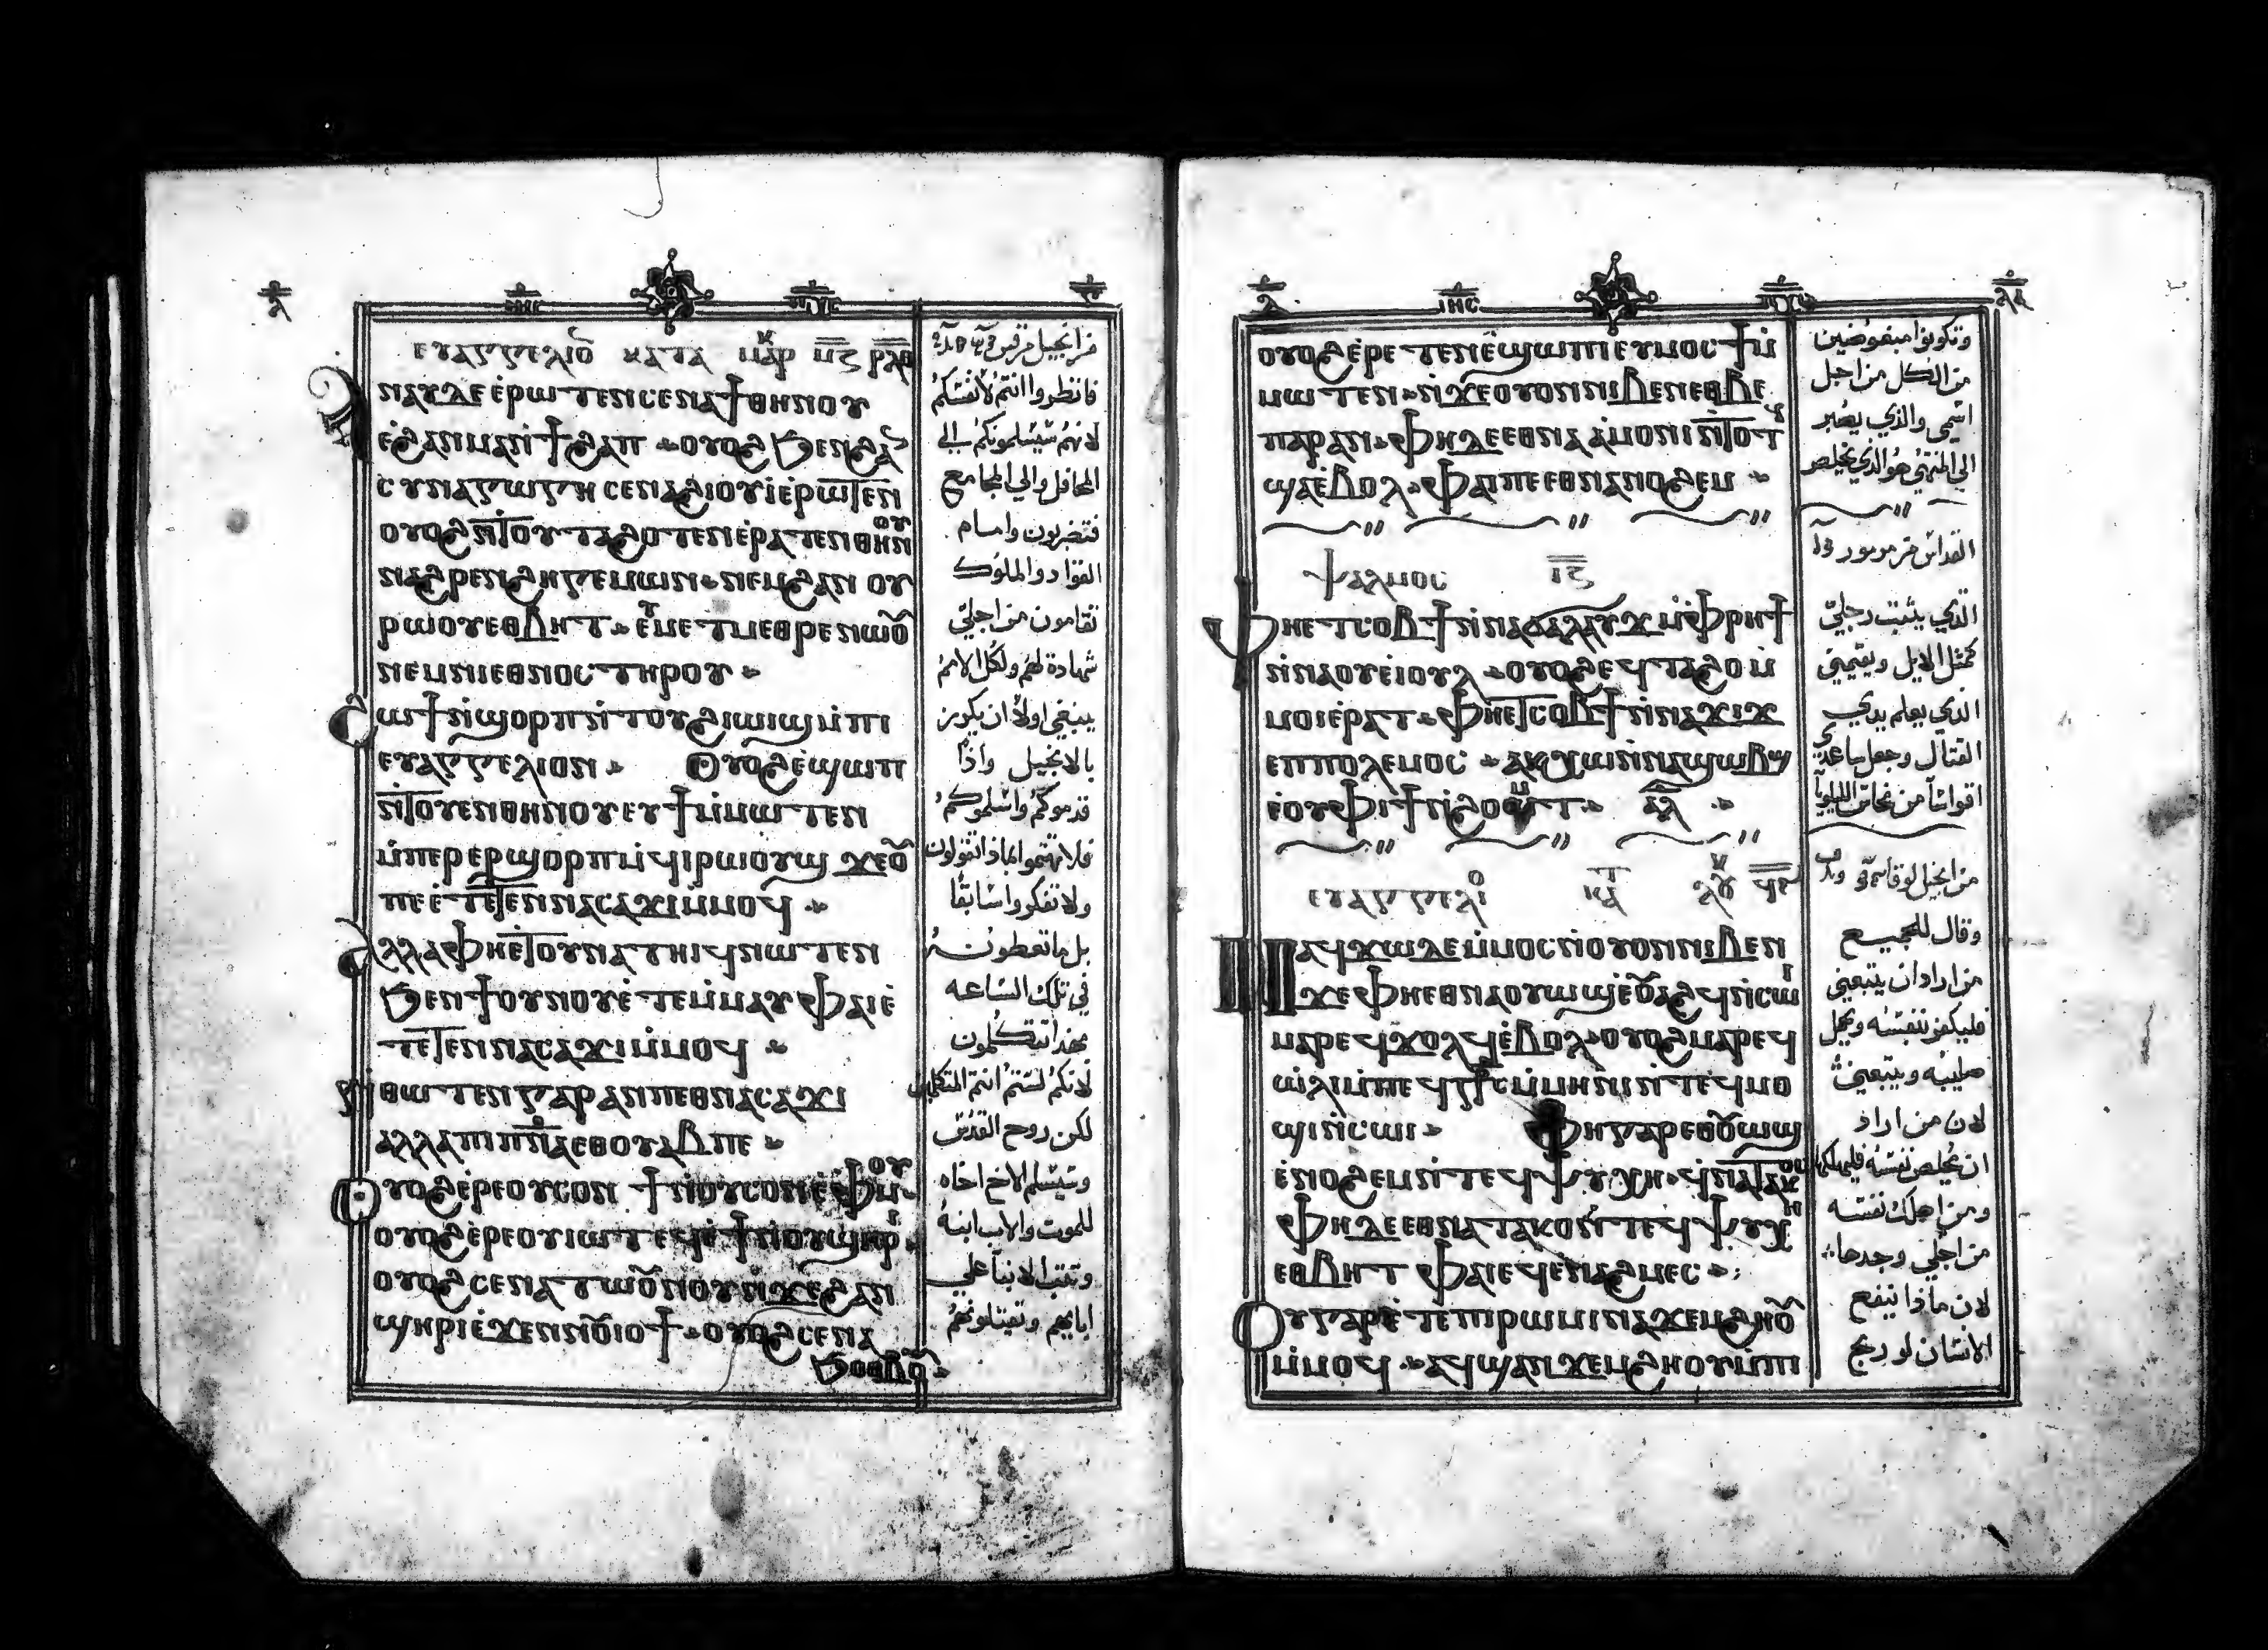 ⲓⲏⲥ
ⲉⲩⲁⲅⲅⲉⲗⲓⲟ̅ ⲕⲁⲧⲁ ⲙⲁⲣⲕ
ⲛⲁⲩ ⲇⲉ ⲉ̇ⲣⲱⲧⲉⲛ ⲥⲉⲛⲁϯⲑⲏⲛⲟⲩ
ⲉ̇ϩⲁⲛⲙⲁⲛ̇ϯϩⲁⲡ ⲟⲩⲟϩ ϧⲉⲛϩⲁⲛ
ⲥⲩⲛⲁⲅⲱⲅⲏ ⲥⲉⲛⲁϩⲓⲟⲩⲓ̇ ⲉ̇ⲣⲱⲧⲉⲛ
ⲟⲩⲟϩ ⲛ̇ⲧⲟⲩⲧⲁϩⲟⲧⲉⲛ ⲉ̇ⲣⲁⲧⲉⲛⲑⲏⲛⲟⲩ
ⲛⲁϩⲣⲉⲛϩⲏⲅⲉⲙⲱⲛ ⲛⲉⲙϩⲁⲛ ⲟⲩ
ⲣⲱⲟⲩ ⲉⲑⲃⲏⲧ ⲉ̇ⲩⲙⲉⲧⲙⲉⲑⲣⲉ ⲛⲱⲟⲩ
ⲛⲉⲙⲛⲓⲉⲑⲛⲟⲥ ⲧⲏⲣⲟⲩ
ⲥⲱϯ ⲛ̇ϣⲟⲣⲡ ⲛ̇ⲧⲟⲩϩⲓⲱⲓϣ ⲙ̇ⲡⲓ
ⲉⲩⲁⲅⲅⲉⲗⲓⲟⲛ ⲟⲩⲟϩ ⲉ̇ϣⲱⲡ
ⲛ̇ⲧⲟⲩⲉⲛⲑⲏⲛⲟⲩ ⲉⲩϯ ⲙ̇ⲙⲱⲧⲉⲛ
ⲙ̇ⲡⲉⲣⲉⲣϣⲟⲣⲡ ⲙ̇ϥⲓⲣⲱⲟⲩϣ ϫⲉⲟⲩ
ⲡⲉ ⲉ̇ⲧⲉⲧⲉⲛⲛⲁⲥⲁϫⲓ ⲙ̇ⲙⲟϥ
ⲁⲗⲗⲁ ⲫⲏⲉ̇ⲧⲟⲩⲛⲁⲧⲏⲓϥ ⲛⲱⲧⲉⲛ
ϧⲉⲛϯⲟⲩⲛⲟⲩ ⲉ̇ⲧⲉⲙ̇ⲙⲁⲩ ⲫⲁⲓ ⲉ̇
ⲧⲉⲧⲉⲛⲛⲁⲥⲁϫⲓ ⲙ̇ⲙⲟϥ
ⲛ̇ⲑⲱⲧⲉⲛ ⲅⲁⲣ ⲁⲛ ⲡⲉⲑⲛⲁⲥⲁϫⲓ
ⲁⲗⲗⲁ ⲡⲓⲡⲛⲁ ⲉⲑⲟⲩⲁⲃ ⲡⲉ
ⲟⲩⲟϩ ⲉ̇ⲣⲉⲟⲩⲥⲟⲛ ϯ ⲛ̇ⲟⲩⲥⲟⲛ ⲉ̇ⲫⲙⲟⲩ
ⲟⲩⲟϩ ⲉ̇ⲣⲉⲟⲩⲓⲱⲧ ⲉϥⲉ̇ϯ ⲛ̇ⲟⲩϣⲏⲣⲓ
ⲟⲩⲟϩ ⲥⲉⲛⲁⲧⲱⲟⲩⲛⲟⲩ ⲛ̇ϫⲉϩⲁⲛ
ϣⲏⲣⲓ ⲉ̇ϫⲉⲛⲛⲟⲩⲓⲟϯ ⲟⲩⲟϩ ⲥⲉⲛⲁ
ϧⲟⲑⲃⲟⲩ
من انجيل مرقس
فانظروا انتم لانفسكم
لانهم سيسلمونكم الى
المحافل والى المجامع
فتضربون وامام
القواد والملوك
تقامون من اجلي
شهادة لهم ولكل الامم
ينبغي اولا ان يكرز
بالانجيل واذا
قدموكم واسلموكم
فلا تهتموا بماذا تقولون
ولا تفكروا سابقا
بل ما تعطون
في تلك الساعه
بهذا تتكلمون
لانكم لستم انتم المتكلمين
لكن روح القدس
وسيسلم الاخ اخاه
للموت والاب ابنه
وتثب الابنا علي
ابايهم وتقتلونهم
ⲓⲏⲥ
ⲟⲩⲟϩ ⲉ̇ⲣⲉⲧⲉⲛⲉ̇ϣⲱⲡⲓ ⲉⲩⲙⲟⲥϯ ⲙ̇
ⲙⲱⲧⲉⲛ ⲛ̇ϫⲉⲟⲩⲟⲛ ⲛⲓⲃⲉⲛ ⲉⲑⲃⲉ
ⲡⲁⲣⲁⲛ ⲫⲏ ⲇⲉ ⲉⲑⲛⲁⲁ̇ⲙⲟⲛⲓ ⲛ̇ⲧⲟⲧϥ
ϣⲁⲉ̇ⲃⲟⲗ ⲫⲁⲓ ⲡⲉ ⲉⲑⲛⲁⲛⲟϩⲉⲙ
ⲯⲁⲗⲙⲟⲥ ⲓⲍ
ⲫⲏⲉⲧⲥⲟⲃϯ ⲛ̇ⲛⲁϭⲁⲗⲁⲩϫ ⲙ̇ⲫⲣⲏϯ
ⲛ̇ⲛⲁⲟⲩⲉⲓⲟⲩⲗ ⲟⲩⲟϩ ⲉϥⲧⲁϩⲟ ⲙ̇
ⲙⲟⲓ ⲉ̇ⲣⲁⲧ ⲫⲏⲉⲧⲥⲟⲃϯ ⲛ̇ⲛⲁϫⲓϫ
ⲉⲡⲡⲟⲗⲉⲙⲟⲥ ⲁⲕⲭⲱ ⲛ̇ⲛⲁϣⲱⲃϣ
ⲉ̇ⲟⲩⲫⲓϯ ⲛ̇ϩⲟⲙⲧ ⲁⲗ
ⲉⲩⲁⲅⲅⲉⲗⲓⲟ ⲕⲁⲧ ⲗⲟⲩⲕ
ⲛⲁϥϫⲱ ⲇⲉ ⲙ̇ⲙⲟⲥ ⲛ̇ⲟⲩⲟⲛ ⲛⲓⲃⲉⲛ
ϫⲉ ⲫⲏⲉⲑⲛⲁⲟⲩⲱϣ ⲉ̇ⲟⲩⲁϩϥ ⲛ̇ⲥⲱⲓ
ⲙⲁⲣⲉϥϫⲟⲗϥ ⲉ̇ⲃⲟⲗ ⲟⲩⲟϩ ⲙⲁⲣⲉϥ
ⲱ̇ⲗⲓ ⲙ̇ⲡⲉϥⲥⲧⲁⲩⲣⲟⲥ ⲙ̇ⲙⲏⲛⲓ ⲛ̇ⲧⲉϥⲙⲟ
ϣⲓ ⲛ̇ⲥⲱⲓ ⲫⲏ ⲅⲁⲣ ⲉⲑⲟⲩⲱϣ
ⲉ̇ⲛⲟϩⲉⲙ ⲛ̇ⲧⲉϥⲯⲩⲭⲏ ϥⲛⲁⲧⲁⲕⲟⲥ
ⲫⲏ ⲇⲉ ⲉⲑⲛⲁⲧⲁⲕⲟ ⲛ̇ⲧⲉϥⲯⲩⲭⲏ
ⲉⲑⲃⲏⲧ ⲫⲁⲓ ⲉϥⲉⲛⲁϩⲙⲉⲥ
ⲟⲩ ⲅⲁⲣ ⲉ̇ⲧⲉⲡⲓⲣⲱⲙⲓ ⲛⲁϫⲉⲙϩⲏⲟⲩ
ⲙ̇ⲙⲟϥ ⲁϥϣⲁⲛϫⲉⲙϩⲏⲟⲩ ⲙ̇ⲡⲓ
وتكونوا مبغوضين
من الكل من اجل
اسمي والذي يصبر
الي المنتهي هو الذي يخلص
القداس من مزمور
الذي يثبت رجلي
كمثل الايل ويقيمني
الذي يعلم يدي
القتال وجعل ساعدي
اقواسا من نحاس
من انجيل لوقا
وقال للجميع
من اراد ان يتبعني
فليكفر بنفسه ويحمل
صليبه ويتبعني
لان من اراد
ان يخلص نفسه فليهلكها
ومن اهلك نفسه
من اجلي وجدها
لان ماذا ينفع
الانسان لو ربح